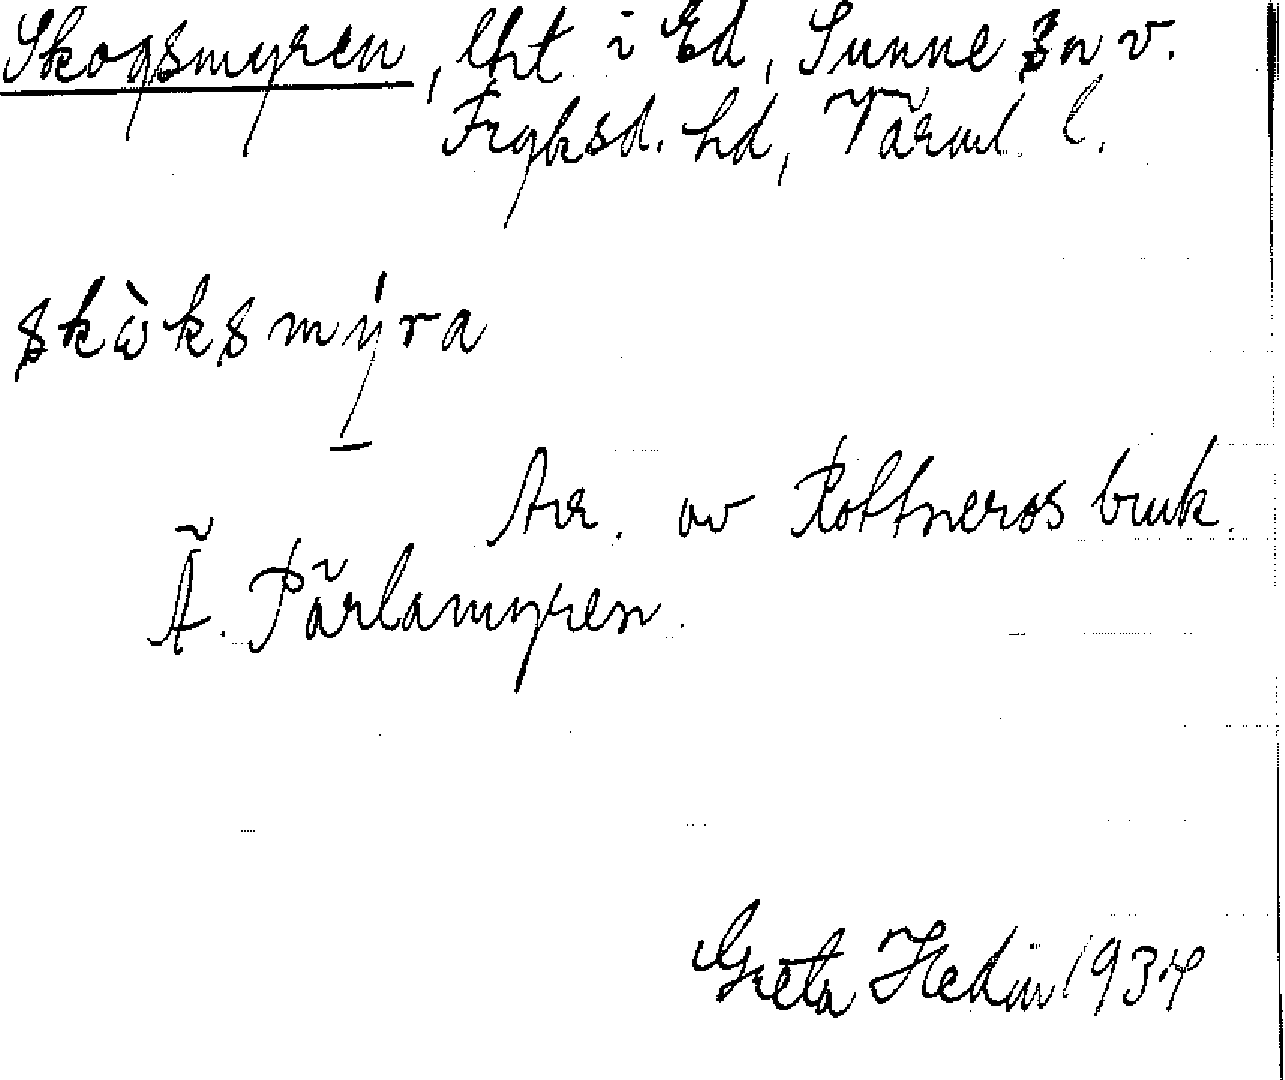 Skogsmyren, lht i Ed, Sunne sn v.
Fryksd. hd, Värml. l.
skὼksmýra
Arr. av Rottneros bruk.
Ä. Pärlamyren.
Greta Hedin 1934